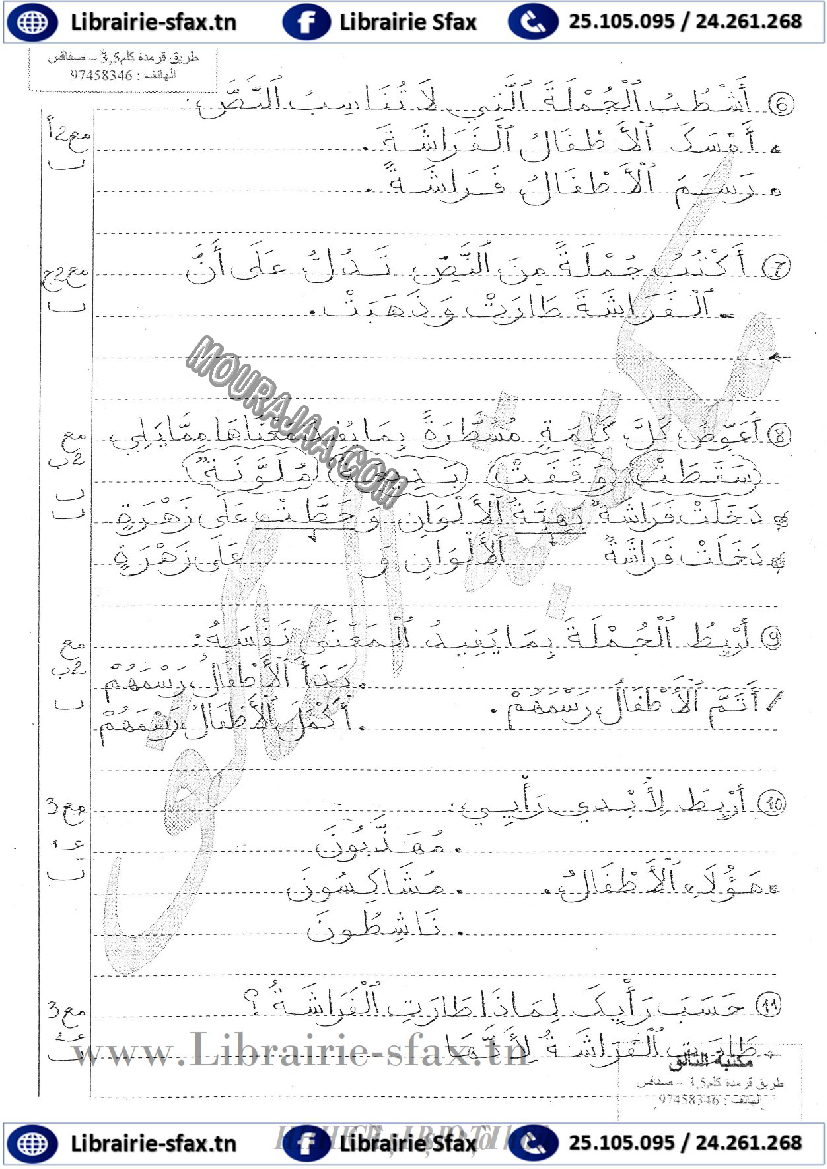 Librairie-sfax.tn Librairie Sfax 25.105.095 / 24.261.268
طريق قرمدة كلم3,5 - صفاقس
الهاتف : 97458346
⑥ أَشْطُبُ الْجُمْلَةَ الَّتِي لَا تُنَاسِبُ النَّصَّ:
مع2أ
• أَمْسَكَ الْأَطْفَالُ الْفَرَاشَةَ .
• رَسَمَ الْأَطْفَالُ فَرَاشَةً .
⑦ أَكْتُبُ جُمْلَةً مِنَ النَّصِّ تَدُلُّ عَلَى أَنَّ
مع2ج
- الْفَرَاشَةَ طَارَتْ وَذَهَبَتْ.
MOURAJAA.COM
⑧ أُعَوِّضُ كُلَّ كَلِمَةٍ مُسَطَّرَةٍ بِمَا يُفِيدُ مَعْنَاهَا مِمَّا يَلِي
مع 2ب
سَقَطَتْ وَقَفَتْ بَدِيعَةُ مُلَوَّنَةٌ
• دَخَلَتْ فَرَاشَةٌ زَهِيَّةُ الْأَلْوَانِ وَحَطَّتْ عَلَى زَهْرَةٍ
• دَخَلَتْ فَرَاشَةٌ الْأَلْوَانِ وَ عَلَى زَهْرَةٍ
⑨ أَرْبِطُ الْجُمْلَةَ بِمَا يُفِيدُ الْمَعْنَى نَفْسَهُ:
مع 2ب
. بَدَأَ الْأَطْفَالُ رَسْمَهُمْ
/ أَتَمَّ الْأَطْفَالُ رَسْمَهُمْ .
. أَكْمَلَ الْأَطْفَالُ رَسْمَهُمْ
⑩ أَرْبِطُ لِأُبْدِيَ رَأْيِي:
مع3
. مُهَذَّبُونَ
• هَؤُلَاءِ الْأَطْفَالُ . . مُشَاكِسُونَ
. نَاشِطُونَ
⑪ حَسَبَ رَأْيِكَ لِمَاذَا طَارَتِ الْفَرَاشَةُ؟
مع3
- طَارَتِ الْفَرَاشَةُ لِأَنَّهَا
www.Librairie-sfax.tn
مكتبة التألق
طريق قرمدة كلم3,5 - صفاقس
الهاتف : 97458346
Librairie-sfax.tn Librairie Sfax 25.105.095 / 24.261.268